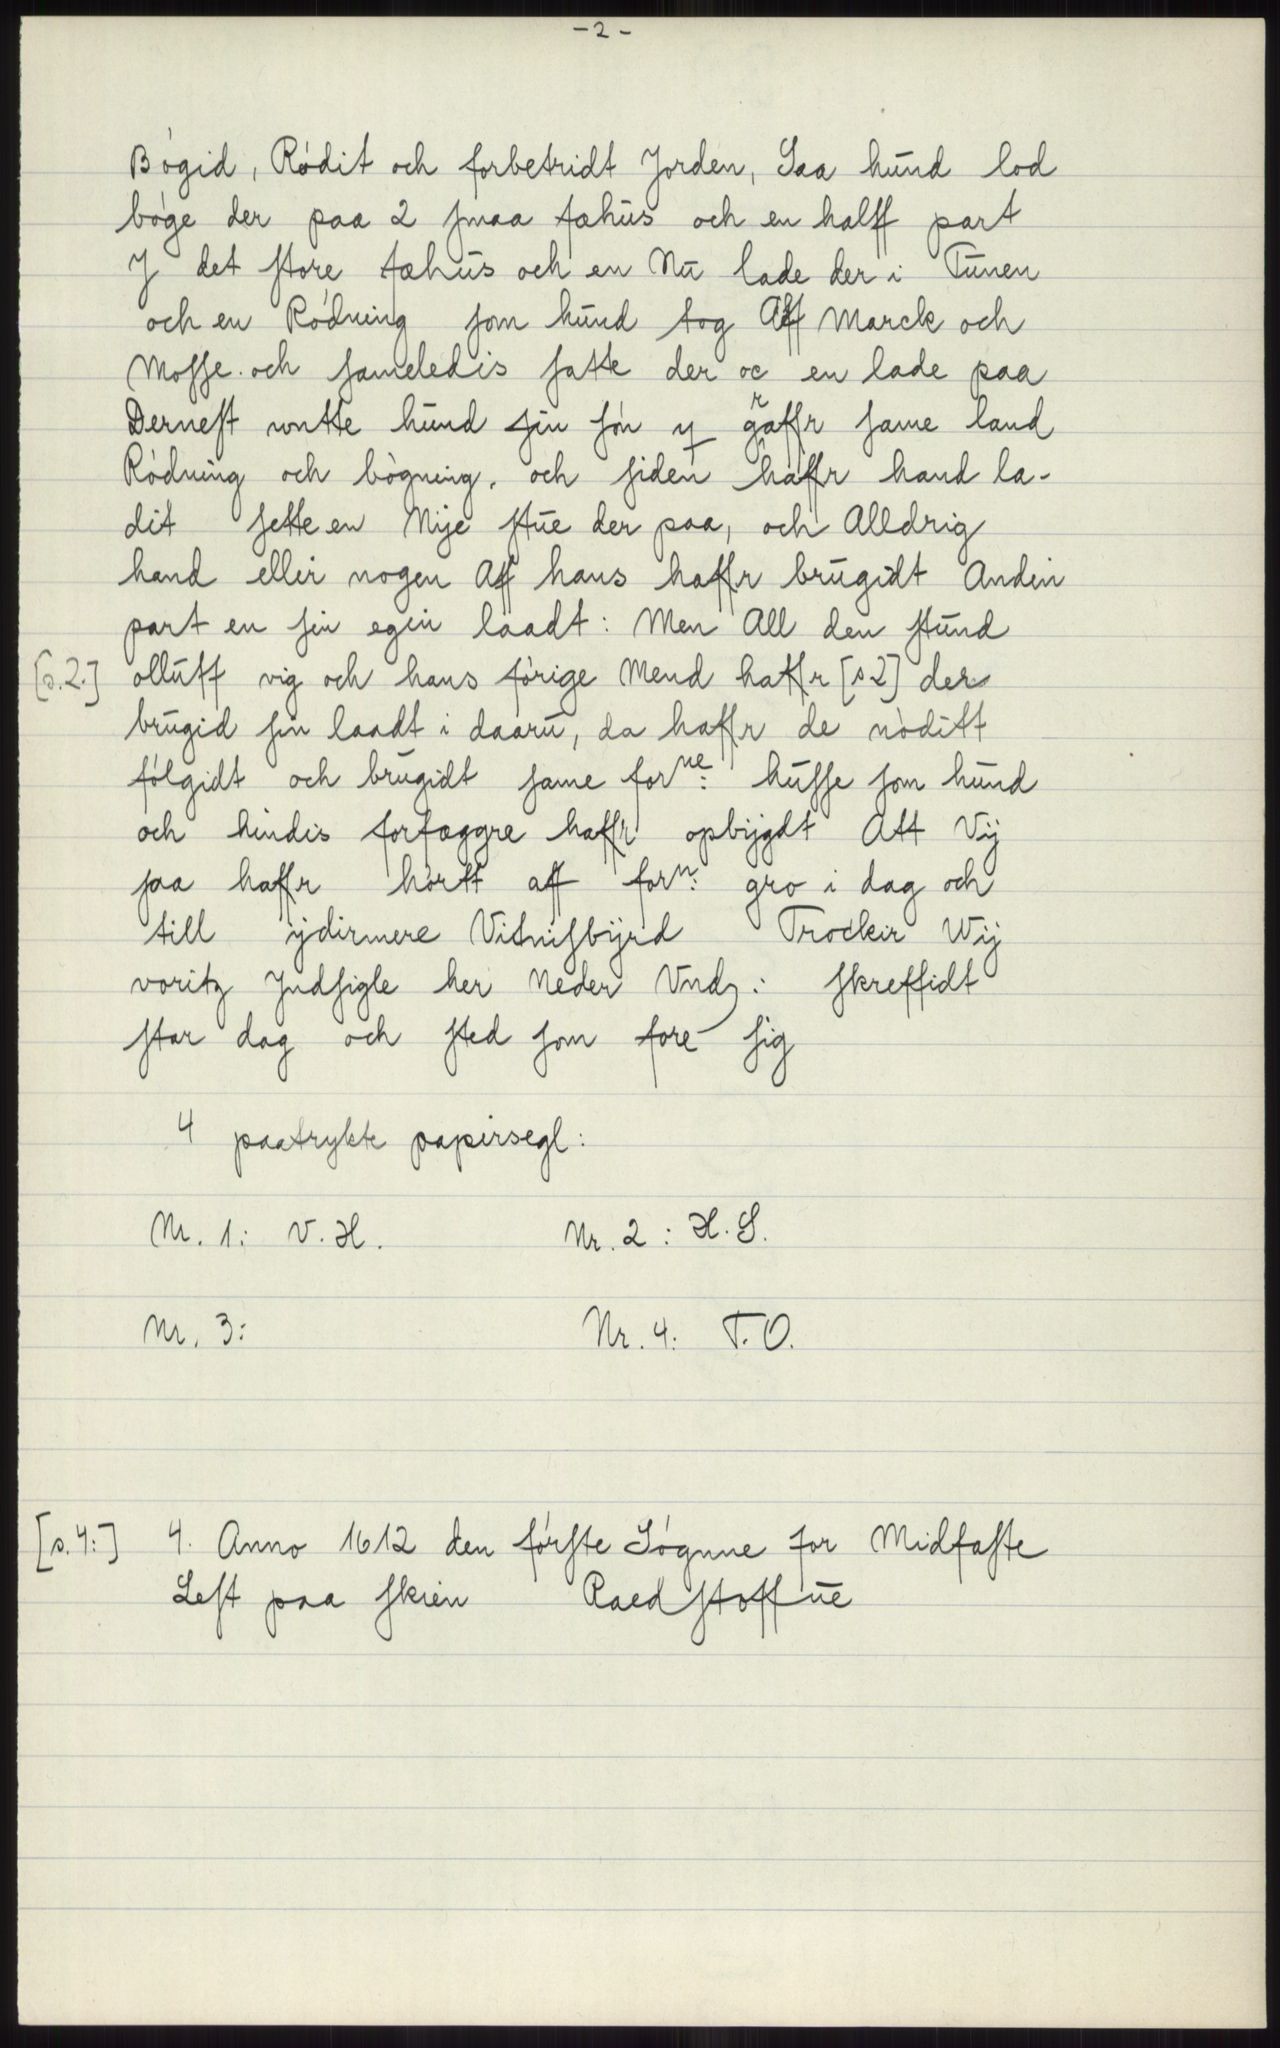 - 2 -
Bógid, Ródit och forbetridt Jorden, Saa hund lod
bóge der paa 2 smaa fæhus och en halff part
J det store fæhus och en Nu lade der i Tunen
och en Ródning som hund tog Aff Marck och
Mosse. och sameledis satte der oc en lade paa
Dernest untte hund sin són y graffr same land
Ródning och bógning. och siden haffr hand la-
dit sette en Nije stue der paa, och Alldrig
hand ellir nogen Aff hans haffr brugidt Anden
part en sin egin laadt: Men All den stund
[s.2.] olluff vig och hans fórige Mend haffr [s2] der
brugid sin laadt i daaru, da haffr de nóditt
fólgidt och brugidt same forne: husse som hund
och hindis forfæggre haffr opbijgdt Att Vij
saa haffr hórtt aff forn: gro i dag och
till ijdirmere Vitnisbijrd Trockir Wij
voritz Jndsigle her Neder Vnd: skreffidt
star dag och sted som fore sig
4 paatrykte papirsegl:
Nr. 1: V. H. Nr. 2: H. S.
Nr. 3: Nr. 4: T. O.
[s.4:] 4. Anno 1612 den fórste Sógnne for Midfaste
Lest paa skien Raedstoffue